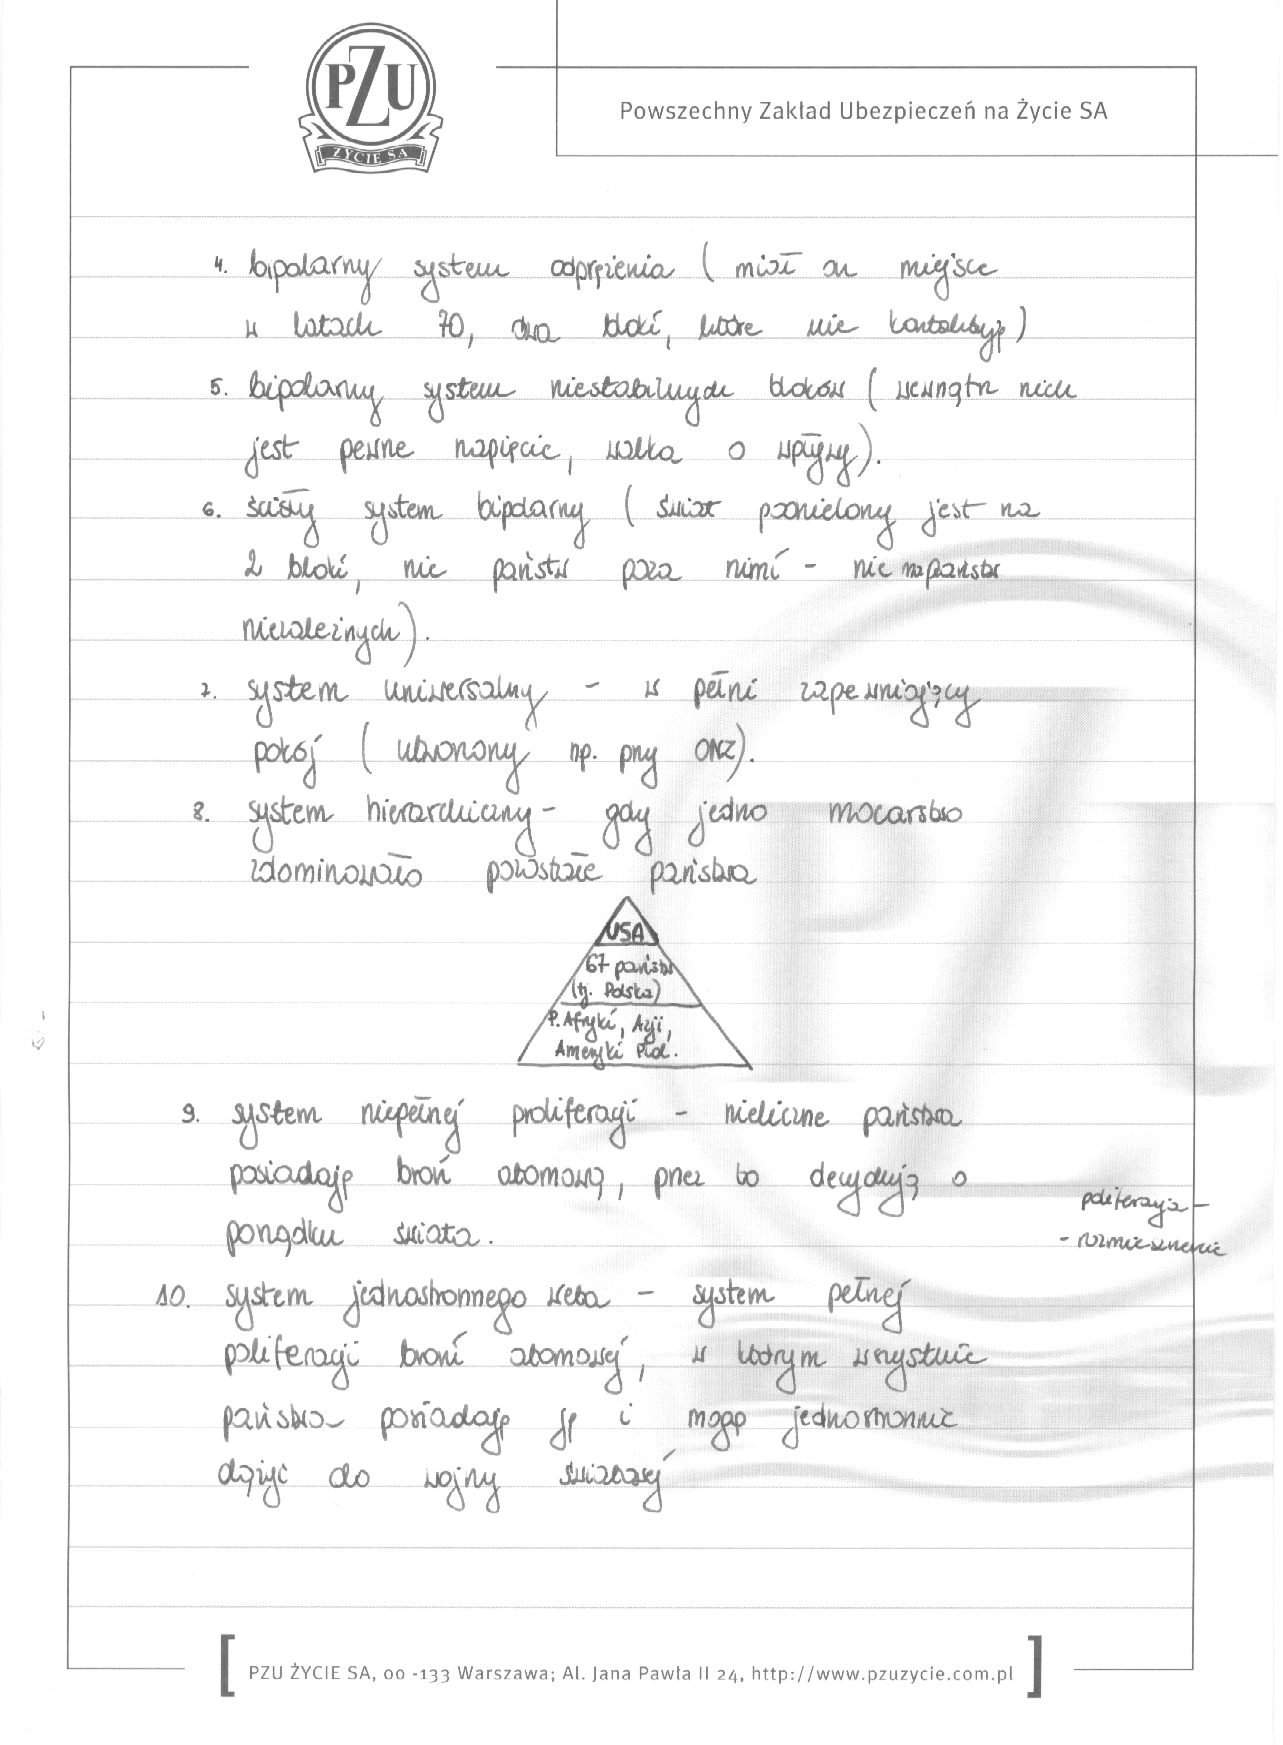 PZU
ŻYCIE SA
Powszechny Zakład Ubezpieczeń na Życie SA
4. bipolarny system odprężenia ( miał on miejsce
w latach 70, dwa bloki, które nie
5. bipolarny system niestabilnych bloków ( wewnątrz nich
jest pewne napięcie, walka o wpływy).
6. ścisły system bipolarny ( świat podzielony jest na
2 bloki, nie państw poza nimi - nie ma państw
niezależnych).
7. system uniwersalny - w pełni zapewniający
pokój ( utworzony np. przy ONZ).
8. system hierarchiczny - gdy jedno mocarstwo
zdominowało pozostałe państwa
USA
67 państw
(tj. Polska)
P. Afryki, Azji,
Ameryki Płd.
9. system niepełnej proliferacji - nieliczne państwa
posiadają broń atomową, przez to decydują o
porządku świata.
poliferacja -
- rozmieszczenie
10. system jednostronnego weta - system pełnej
poliferacji broni atomowej, w którym wszystkie
państwa posiadają ją i mogą jednostronnie
dążyć do wojny światowej
PZU ŻYCIE SA, 00 -133 Warszawa; Al. Jana Pawła II 24, http://www.pzuzycie.com.pl